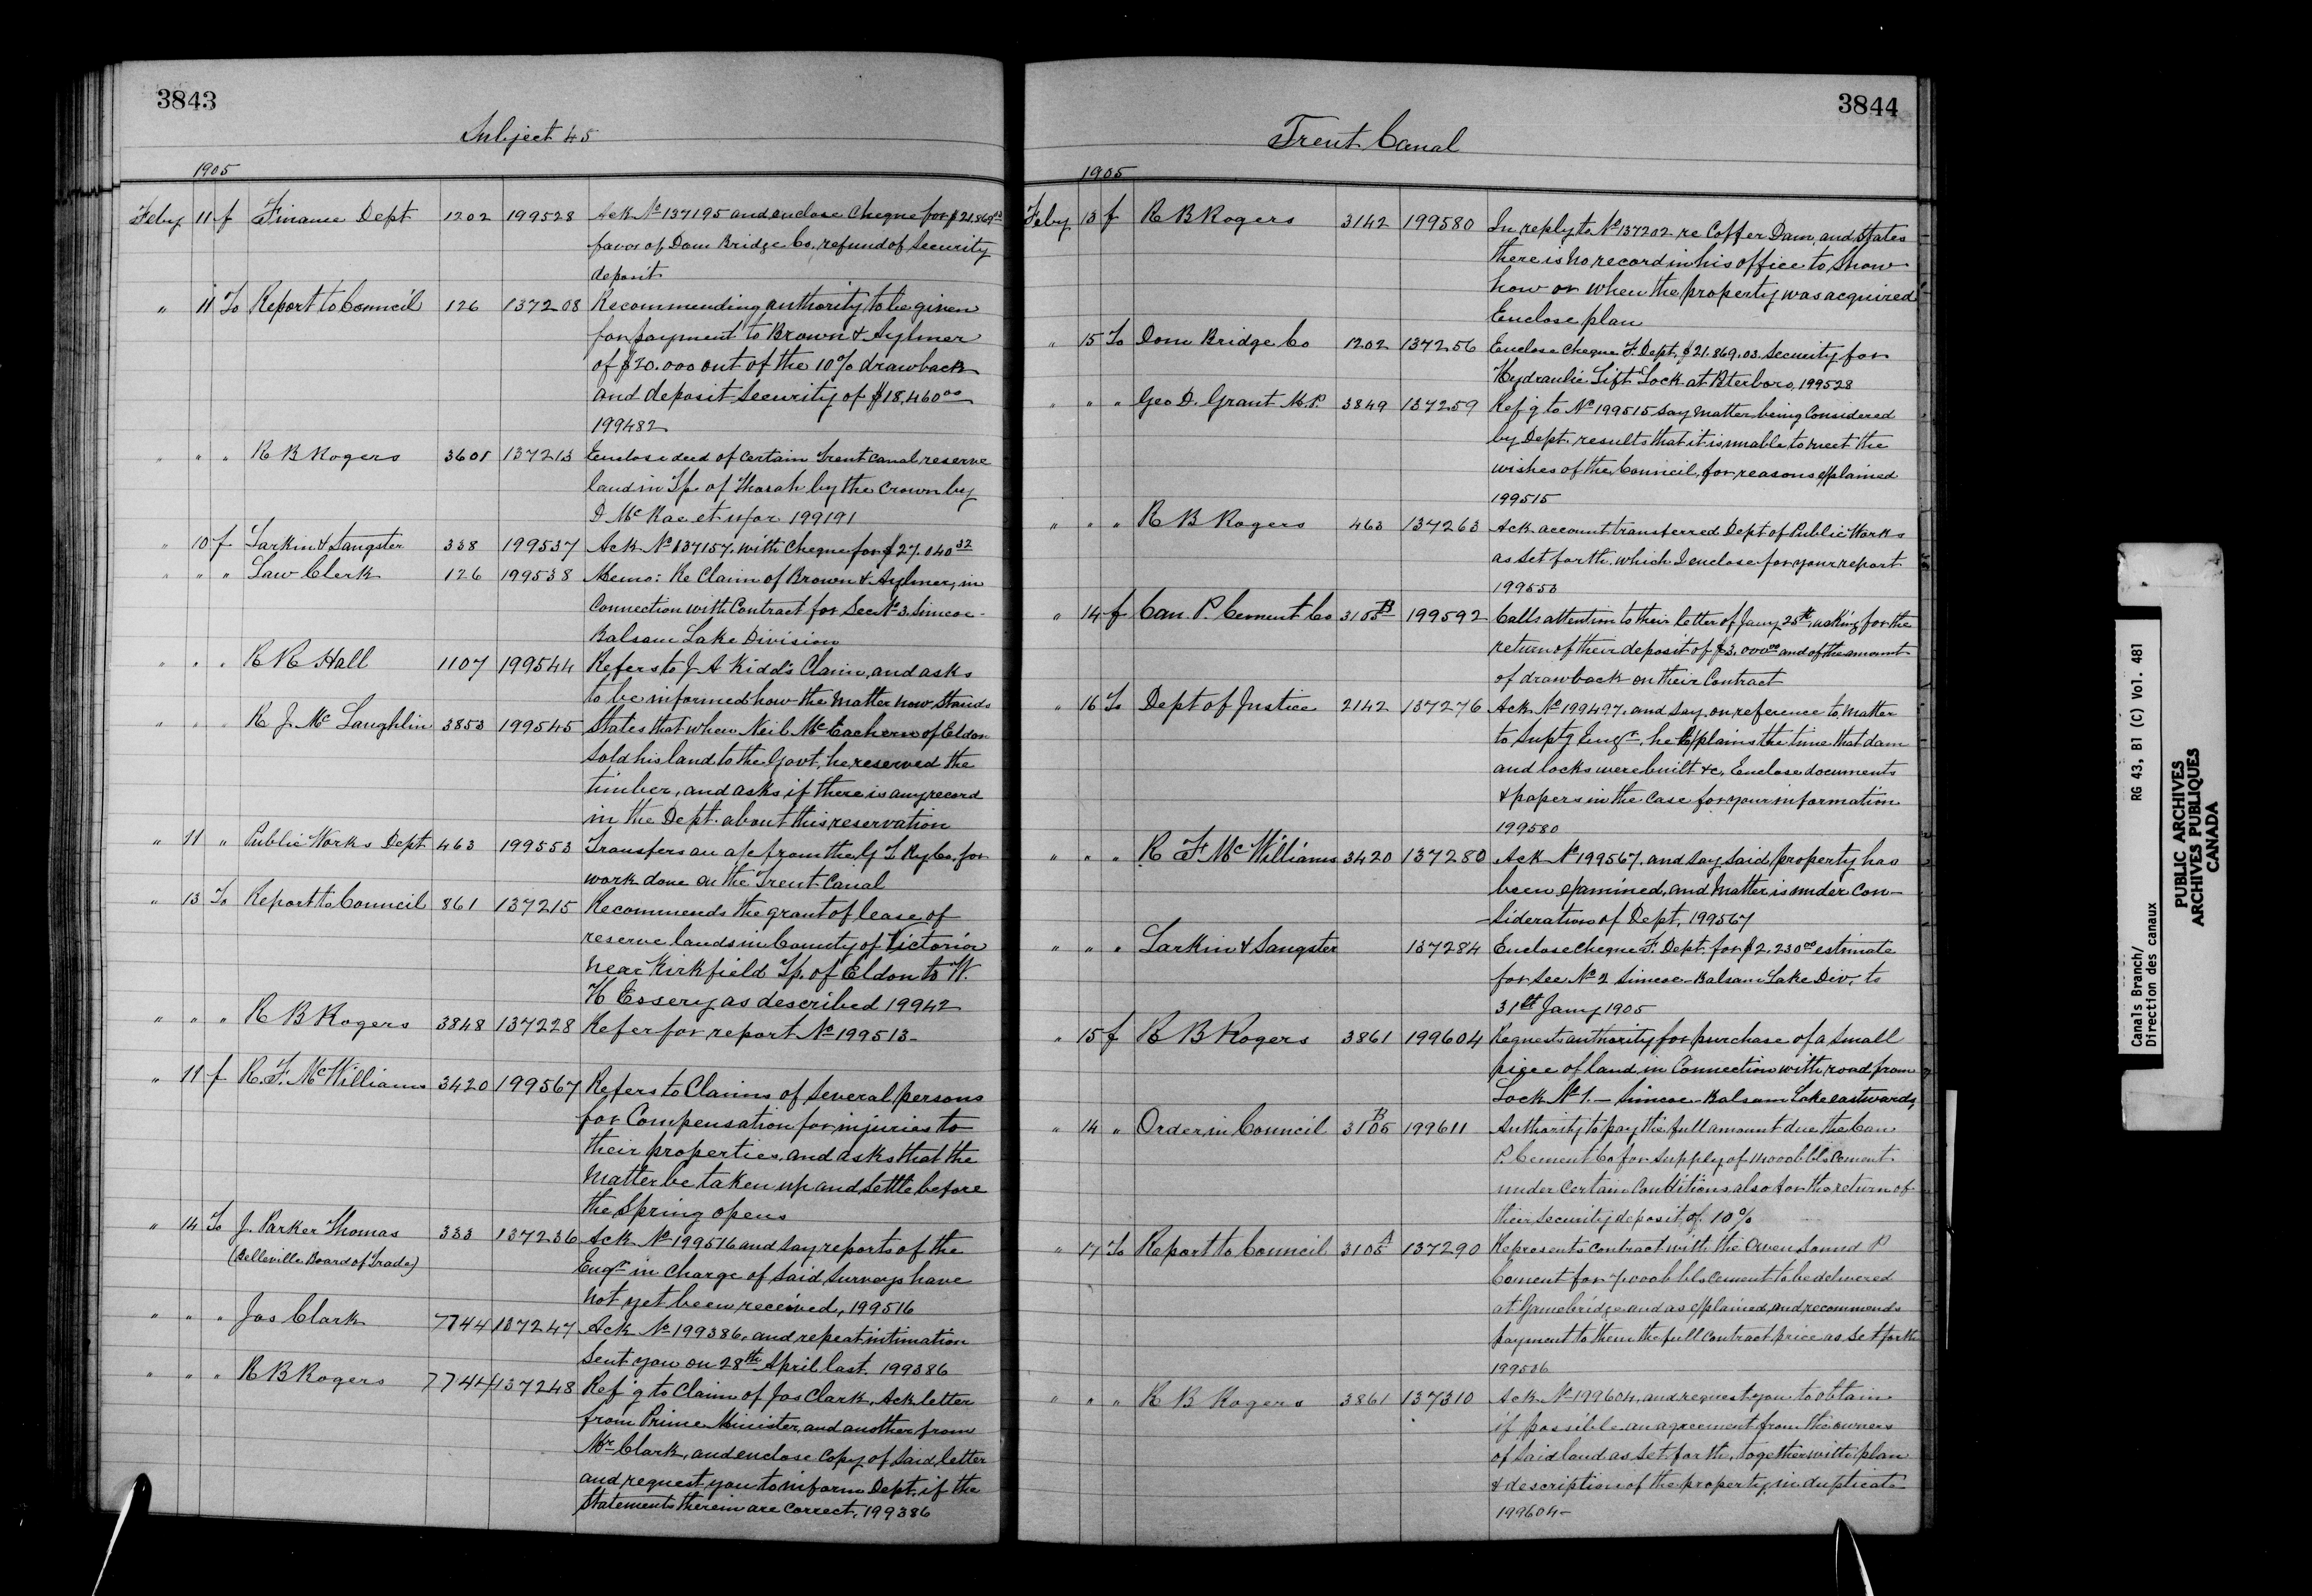 3843
Subject 45
1905
Feby 11 f Finance Dept 1202 199528 Ack No 137195 and enclose cheque for $21.869 03
favor of Dom Bridge Co, refund of Security
deposit
" 11 To Report to Council 126 137208 Recommending authority to be given
for payment to Brown & Aylmer
of $20.000 out of the 10% drawback
and deposit security of $18,460 00
199482
" " " R B Rogers 3601 137213 Enclose deed of certain Trent Canal reserve
land in Tp. of Thorah by the Crown by
D McRae et uxor 199191
" 10 f Larkin & Sangster 338 199537 Ack No 137157, with cheque for $27.040 32
" " " Law Clerk 126 199538 Memo: Re Claim of Brown & Aylmer, in
Connection with Contract for Sec No 3. Simcoe-
Balsam Lake Division
" " " R R Hall 1107 199544 Refers to J A Kidd's Claim, and asks
to be informed how the matter now stands
" " " R J. McLaughlin 3853 199545 States that when Neil McEachern of Eldon
sold his land to the Govt, he reserved the
timber, and asks if there is any record
in the Dept. about this reservation
" 11 " Public Works Dept 463 199553 Transfers an a/c from the G T Ry Co, for
work done on the Trent Canal
" 13 To Report to Council 861 137215 Recommends the grant of lease of
reserve lands in County of Victoria
near Kirkfield Tp. of Eldon to W.
H Essery as described 19942
" " " R B Rogers 3848 137228 Refer for report No 199513-
" 11 f R. F. McWilliams 3420 199567 Refers to Claims of several persons
for Compensation for injuries to
their properties, and asks that the
matter be taken up and settle before
the Spring opens
" 14 To J. Parker Thomas 333 137236 Ack No 199516 and say reports of the
(Belleville Board of Trade) Engr in charge of said surveys have
not yet been received, 199516
" " " Jas Clark 7744 137247 Ack No 199386, and repeat intimation
sent you on 28th April last. 199386
" " " R B Rogers 7744 137248 Ref'g to Claim of Jas Clark, Ack letter
from Prime Minister, and another from
Mr Clark, and enclose copy of said letter
and request you to inform Dept, if the
statements therein are correct, 199386
3844
Trent Canal
1905
Feby 13 f R B Rogers 3142 199580 In reply to No 137202 re Coffer Dam, and states
there is no record in his office to show
how or when the property was acquired
Enclose plan
" 15 To Dom Bridge Co 1202 137256 Enclose cheque F. Dept, $21.869.03. Security for
Hydraulic Lift Lock at Pterboro, 199528
" " " Geo D. Grant M.P. 3849 137259 Ref'g to No 199515 say matter being Considered
by Dept. results that it is unable to meet the
wishes of the Council, for reasons explained
199515
" " " R B Rogers 463 137263 Ack account transferred Dept of Public Works
as set forth, which I enclose for your report
199553
" 14 f Can. P. Cement Co 3105 B 199592 Calls attention to their letter of Jany 25th, asking for the
return of their deposit of $3.000 00 and of the amount
of drawback on their Contract
" 16 To Dept of Justice 2142 137276 Ack No 199497, and say, on reference to matter
to Supt'g Engr, he explains the time that dam
and locks were built &c, Enclose documents
& papers in the case for your information
199580
" " " R F McWilliams 3420 137280 Ack No 199567, and say said property has
been examined, and matter is under con-
sideration of Dept, 199567
" " " Larkin & Sangster 137284 Enclose cheque F. Dept. for $2.230 00 estimate
for Sec No 2 Simcoe-Balsam Lake Div, to
31st Jany 1905
" 15 f R B Rogers 3861 199604 Requests authority for purchase of a small
piece of land, in Connection with road from
Lock No 1. - Simcoe-Balsam Lake eastwards,
" 14 " Order in Council 3105 B 199611 Authority to pay the full amount due the Can
P. Cement Co for supply of 14000 bbls cement
under certain Conditions, also for the return of
their security deposit of 10%
" 17 To Report to Council 3105 A 137290 Represents contract with the Owen Sound P
Cement for 7.000 bbls Cement to be delivered
at Gamebridge and as explained, and recommends
payment to them the full contract price as set forth
199506
" " " R B Rogers 3861 137310 Ack No 199604, and request you to obtain
if possible an agreement from the owners
of said land as set forth, together with plan
& description of the property, in duplicate
199604-
Canals Branch/
Direction des canaux
RG 43, B1 (C) Vol. 481
PUBLIC ARCHIVES
ARCHIVES PUBLIQUES
CANADA